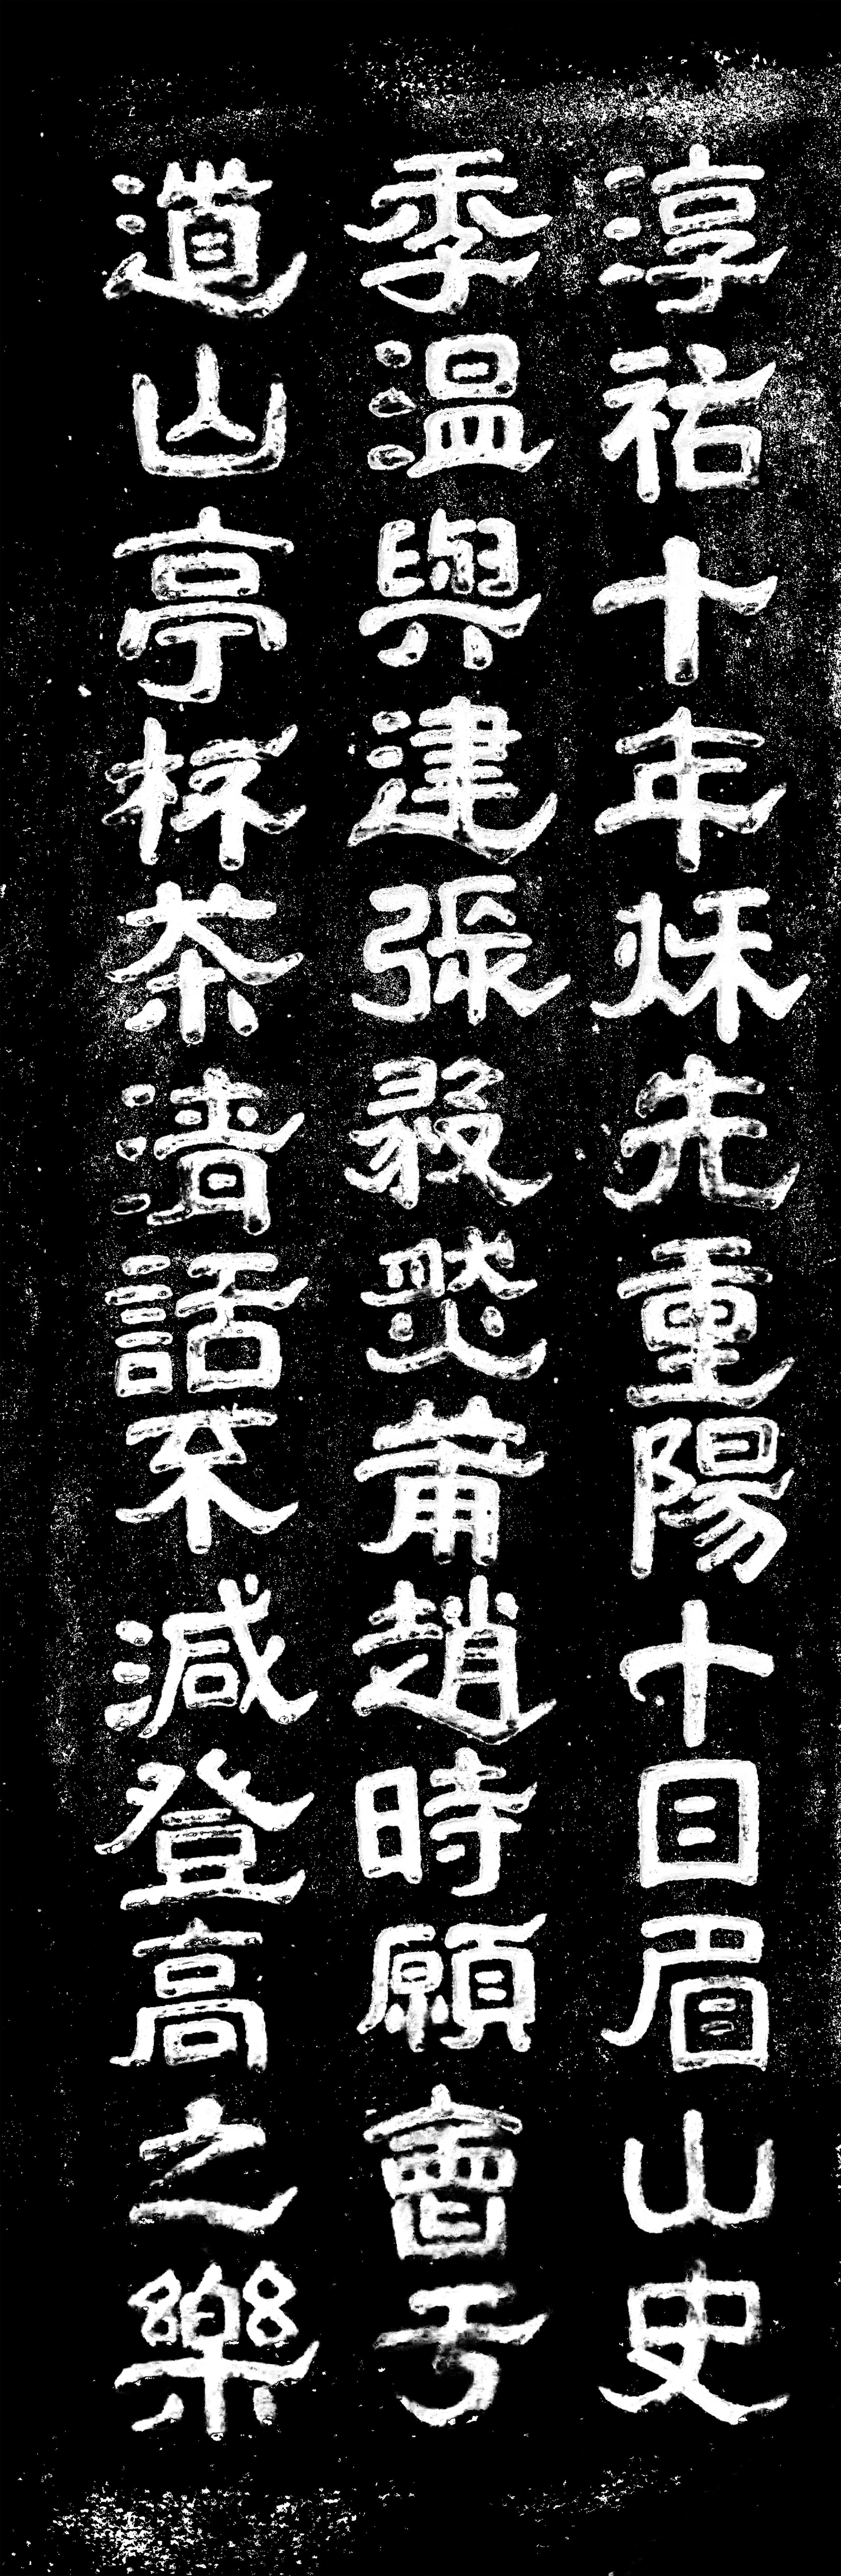 淳祐十年秌先重陽十日眉山史
季温與建張毅然莆趙時願會于
道山亭杯茶清話不減登高之樂